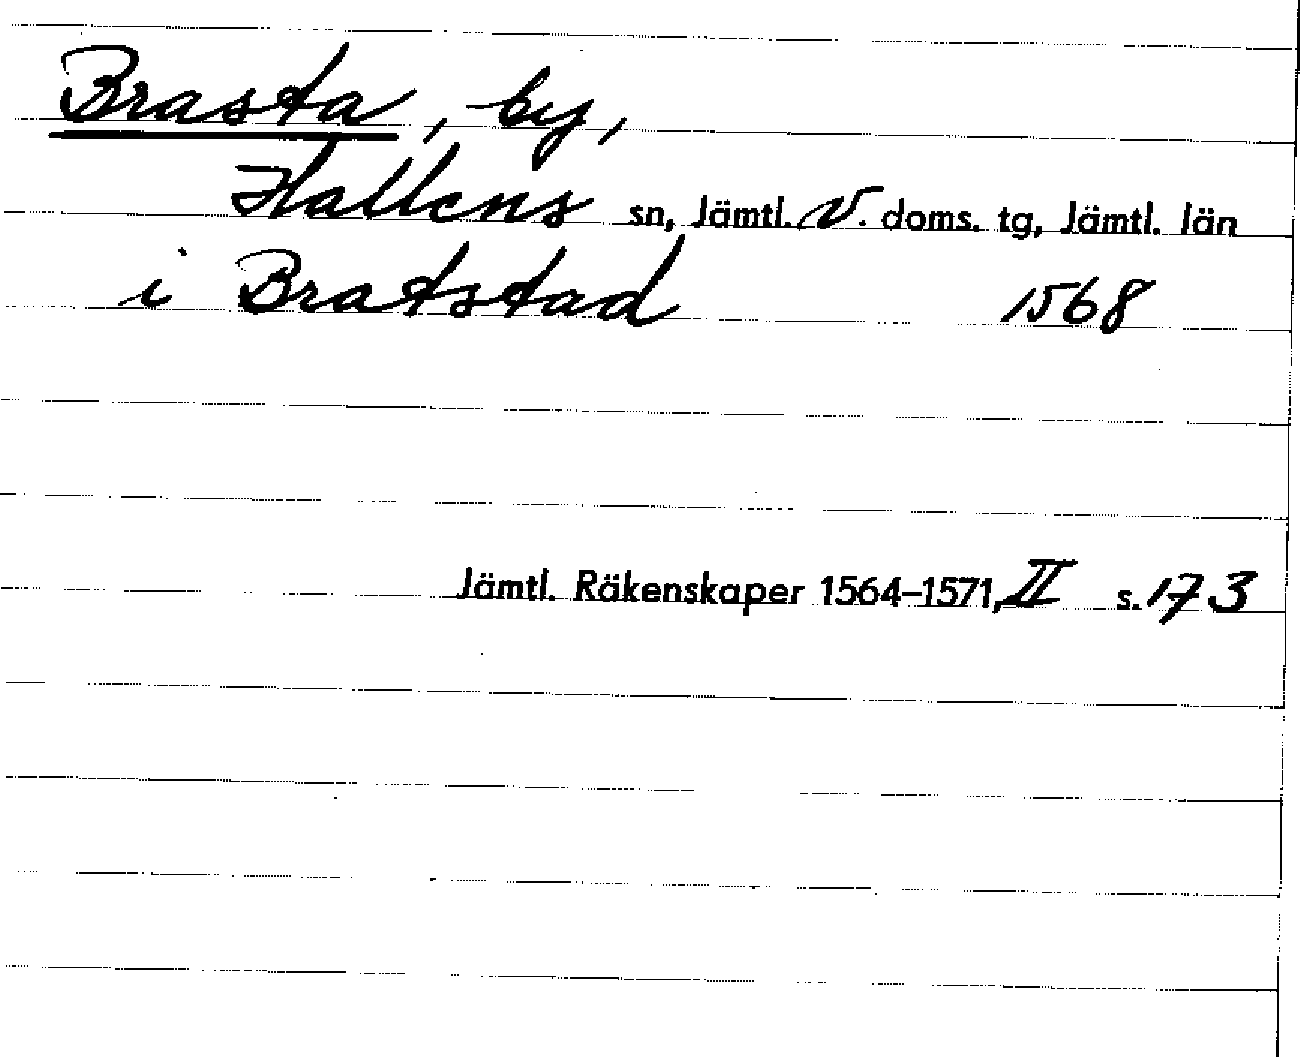 Brasta, by,
Hallens sn, Jämtl. V. doms. tg, Jämtl. län
i Bratstad 1568
Jämtl. Räkenskaper 1564–1571, II s. 173